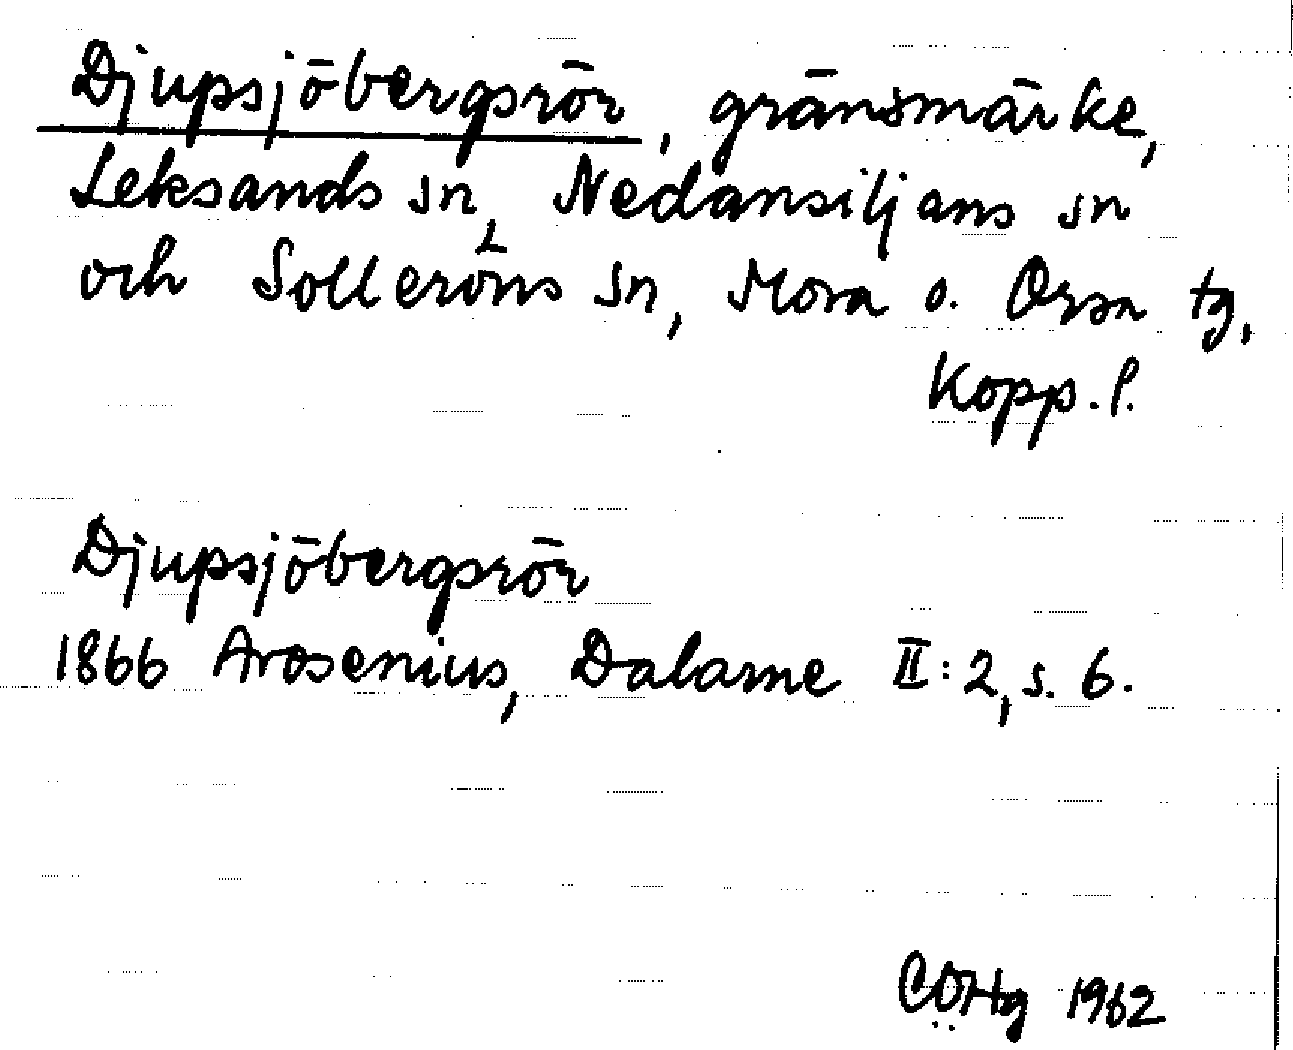 Djupsjöbergsrör, gränsmärke,
Leksands sn, Nedansiljans sn
och Solleröns sn, Mora o. Orsa tg,
Kopp. l.
Djupsjöbergsrör
1866 Arosenius, Dalarne II:2, s. 6.
CÖHg 1962